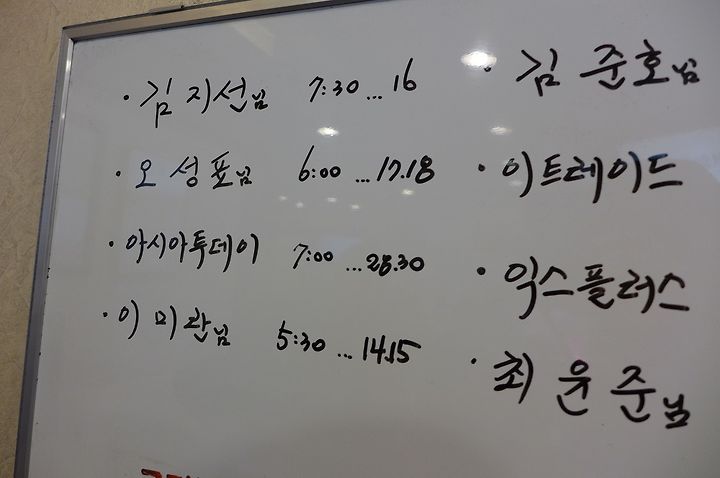 · 김 지선님 7:30 ... 16
· 오 성표님 6:00 ... 17.18
· 아시아투데이 7:00 ... 28.30
· 이 미란님 5:30 ... 14.15
· 김 준호님
· 이트레이드
· 익스플러스
· 최 윤준님